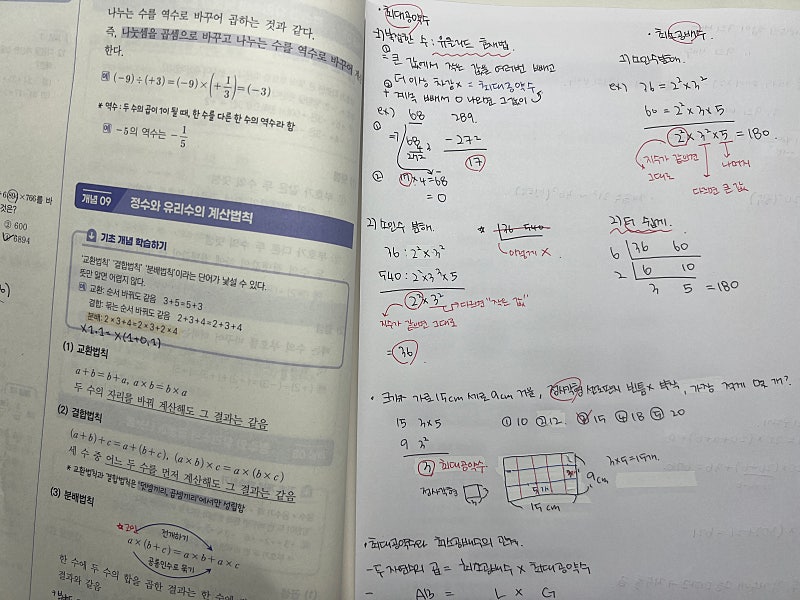 나누는 수를 역수로 바꾸어 곱하는 것과 같다.
즉, 나눗셈을 곱셈으로 바꾸고 나누는 수를 역수로 바꾸어
한다.
예 (-9)÷(+3)=(-9)×(+1/3)=(-3)
* 역수 : 두 수의 곱이 1이 될 때, 한 수를 다른 한 수의 역수라 함
예 -5의 역수는 -1/5
×766를 바
것은?
③ 600
6894
개념 09 정수와 유리수의 계산법칙
기초 개념 학습하기
'교환법칙' '결합법칙' '분배법칙'이라는 단어가 낯설 수 있다.
뜻만 알면 어렵지 않다.
예 교환: 순서 바꿔도 같음 3+5=5+3
결합: 묶는 순서 바꿔도 같음 2+3+4=2+3+4
분배: 2×3+4=2×3+2×4
×1.1= ×(1+0.1)
(1) 교환법칙
a+b=b+a, a×b=b×a
두 수의 자리를 바꿔 계산해도 그 결과는 같음
(2) 결합법칙
(a+b)+c=a+(b+c), (a×b)×c=a×(b×c)
세 수 중 어느 두 수를 먼저 계산해도 그 결과는 같음
* 교환법칙과 결합법칙은 '덧셈끼리, 곱셈끼리'에서만 성립함
(3) 분배법칙
전개하기
a×(b+c)=a×b+a×c
공통인수로 묶기
한 수에 두 수의 합을 곱한 결과는 한 수에
결과와 같음
• 최대공약수
1) 복잡한 수 : 유클리드 호제법.
① = 큰 값에서 작은 값을 여러번 빼고
더 이상 차감x = 최대공약수
② 계속 빼서 0 나오면 그 값이
ex) 68 289
① => 68 × 4 = 272
- 272
17
② 17 × 4 = 68
= 0
2) 소인수 분해.
36 : 2²×3²
540 : 2²×3³×5
2²×3² → 다르면 "작은 값"
지수가 같으면 그대로
= 36
* 36 540
이렇게 X
• 최소공배수.
1) 소인수분해.
ex) 36 = 2²×3²
60 = 2²×3×5
2²×3²×5 = 180.
지수가 같으면 그대로
다르면 큰 값
나머지
2) 더 쉽게.
6 36 60
2 6 10
3 5 = 180
가로 15cm 세로 9cm 거울, 정사각형 빈틈x 부착, 가장 적게 면 개?
15 3×5
9 3²
③ 최대공약수
① 10 ② 12. ③ 15 ④ 18 ⑤ 20
정사각형
9cm
15cm
3×5=15개.
• 최대공약수와 최소공배수의 관계.
- 두 자연수의 곱 = 최소공배수 × 최대공약수
- AB = L × G